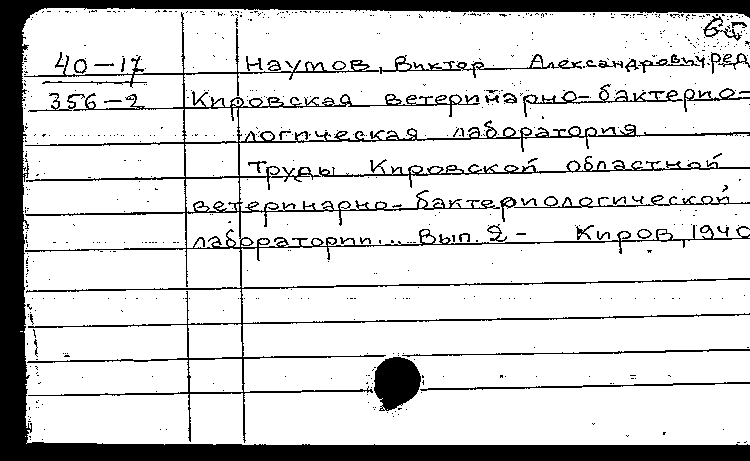 40-17 Наумов, Виктор Александрович, ред
356-2 Кировская ветеринарно-бактерио-
логическая лаборатория.
Труды Кировской областной
ветеринарно-бактериологической
лаборатории... Вып. 2 - Киров, 1940